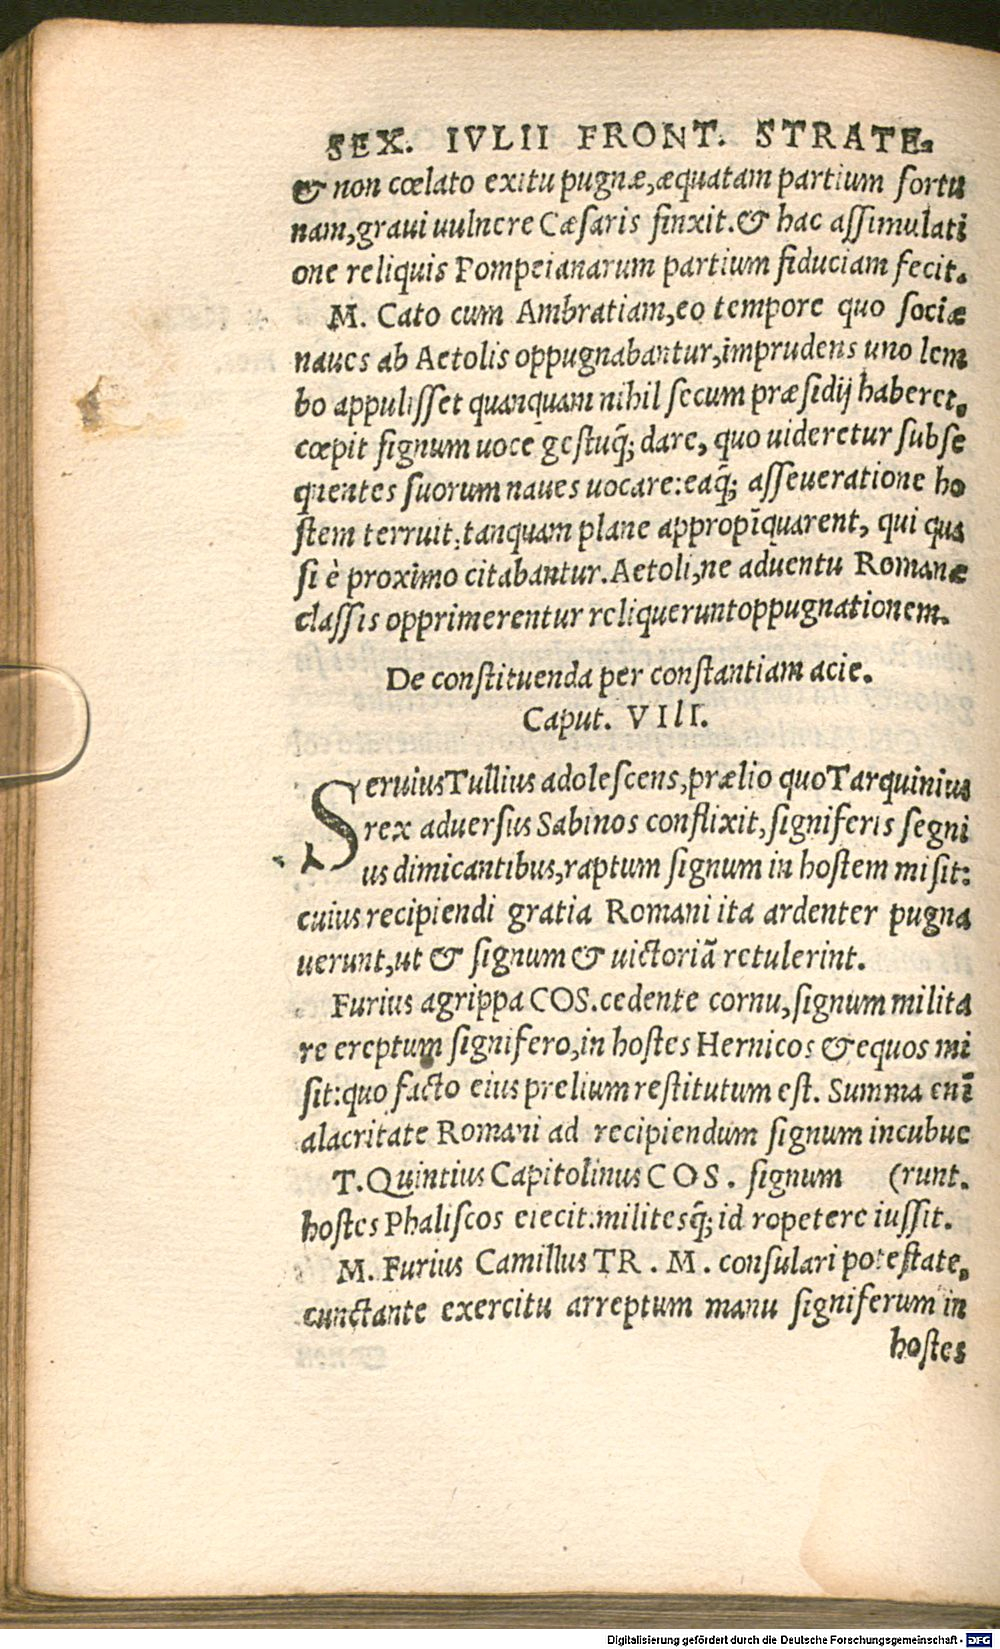 SEX. IVLII FRONT. STRATE-
& non cœlato exitu pugnæ, æquatam partium fortu
nam, graui uulnere Cæsaris finxit. & hac assimulati
one reliquis Pompeianarum partium fiduciam fecit.
M. Cato cum Ambratiam, eo tempore quo sociæ
naues ab Aetolis oppugnabantur, imprudens uno lem
bo appulisset quanquam nihil secum præsidij haberet,
cœpit signum uoce gestuq̃; dare, quo uideretur subse
quentes suorum naues uocare: eaq̃; asseueratione ho
stem terruit, tanquam plane appropīquarent, qui qua
si è proximo citabantur. Aetoli, ne aduentu Romanæ
classis opprimerentur reliquerunt oppugnationem.
De constituenda per constantiam acie.
Caput. VIII.
Seruius Tullius adolescens, prælio quo Tarquinius
rex aduersus Sabinos conflixit, signiferis segni
us dimicantibus, raptum signum in hostem misit:
cuius recipiendi gratia Romani ita ardenter pugna
uerunt, ut & signum & uictoriā retulerint.
Furius agrippa COS. cedente cornu, signum milita
re ereptum signifero, in hostes Hernicos & equos mi
sit: quo facto eius prelium restitutum est. Summa enī
alacritate Romani ad recipiendum signum incubue
T. Quintius Capitolinus COS. signum (runt.
hostes Phaliscos eiecit: militesq̃; id ropetere iussit.
M. Furius Camillus TR. M. consulari potestate,
cunctante exercitu arreptum manu signiferum in
hostes
Digitalisierung gefördert durch die Deutsche Forschungsgemeinschaft - DFG